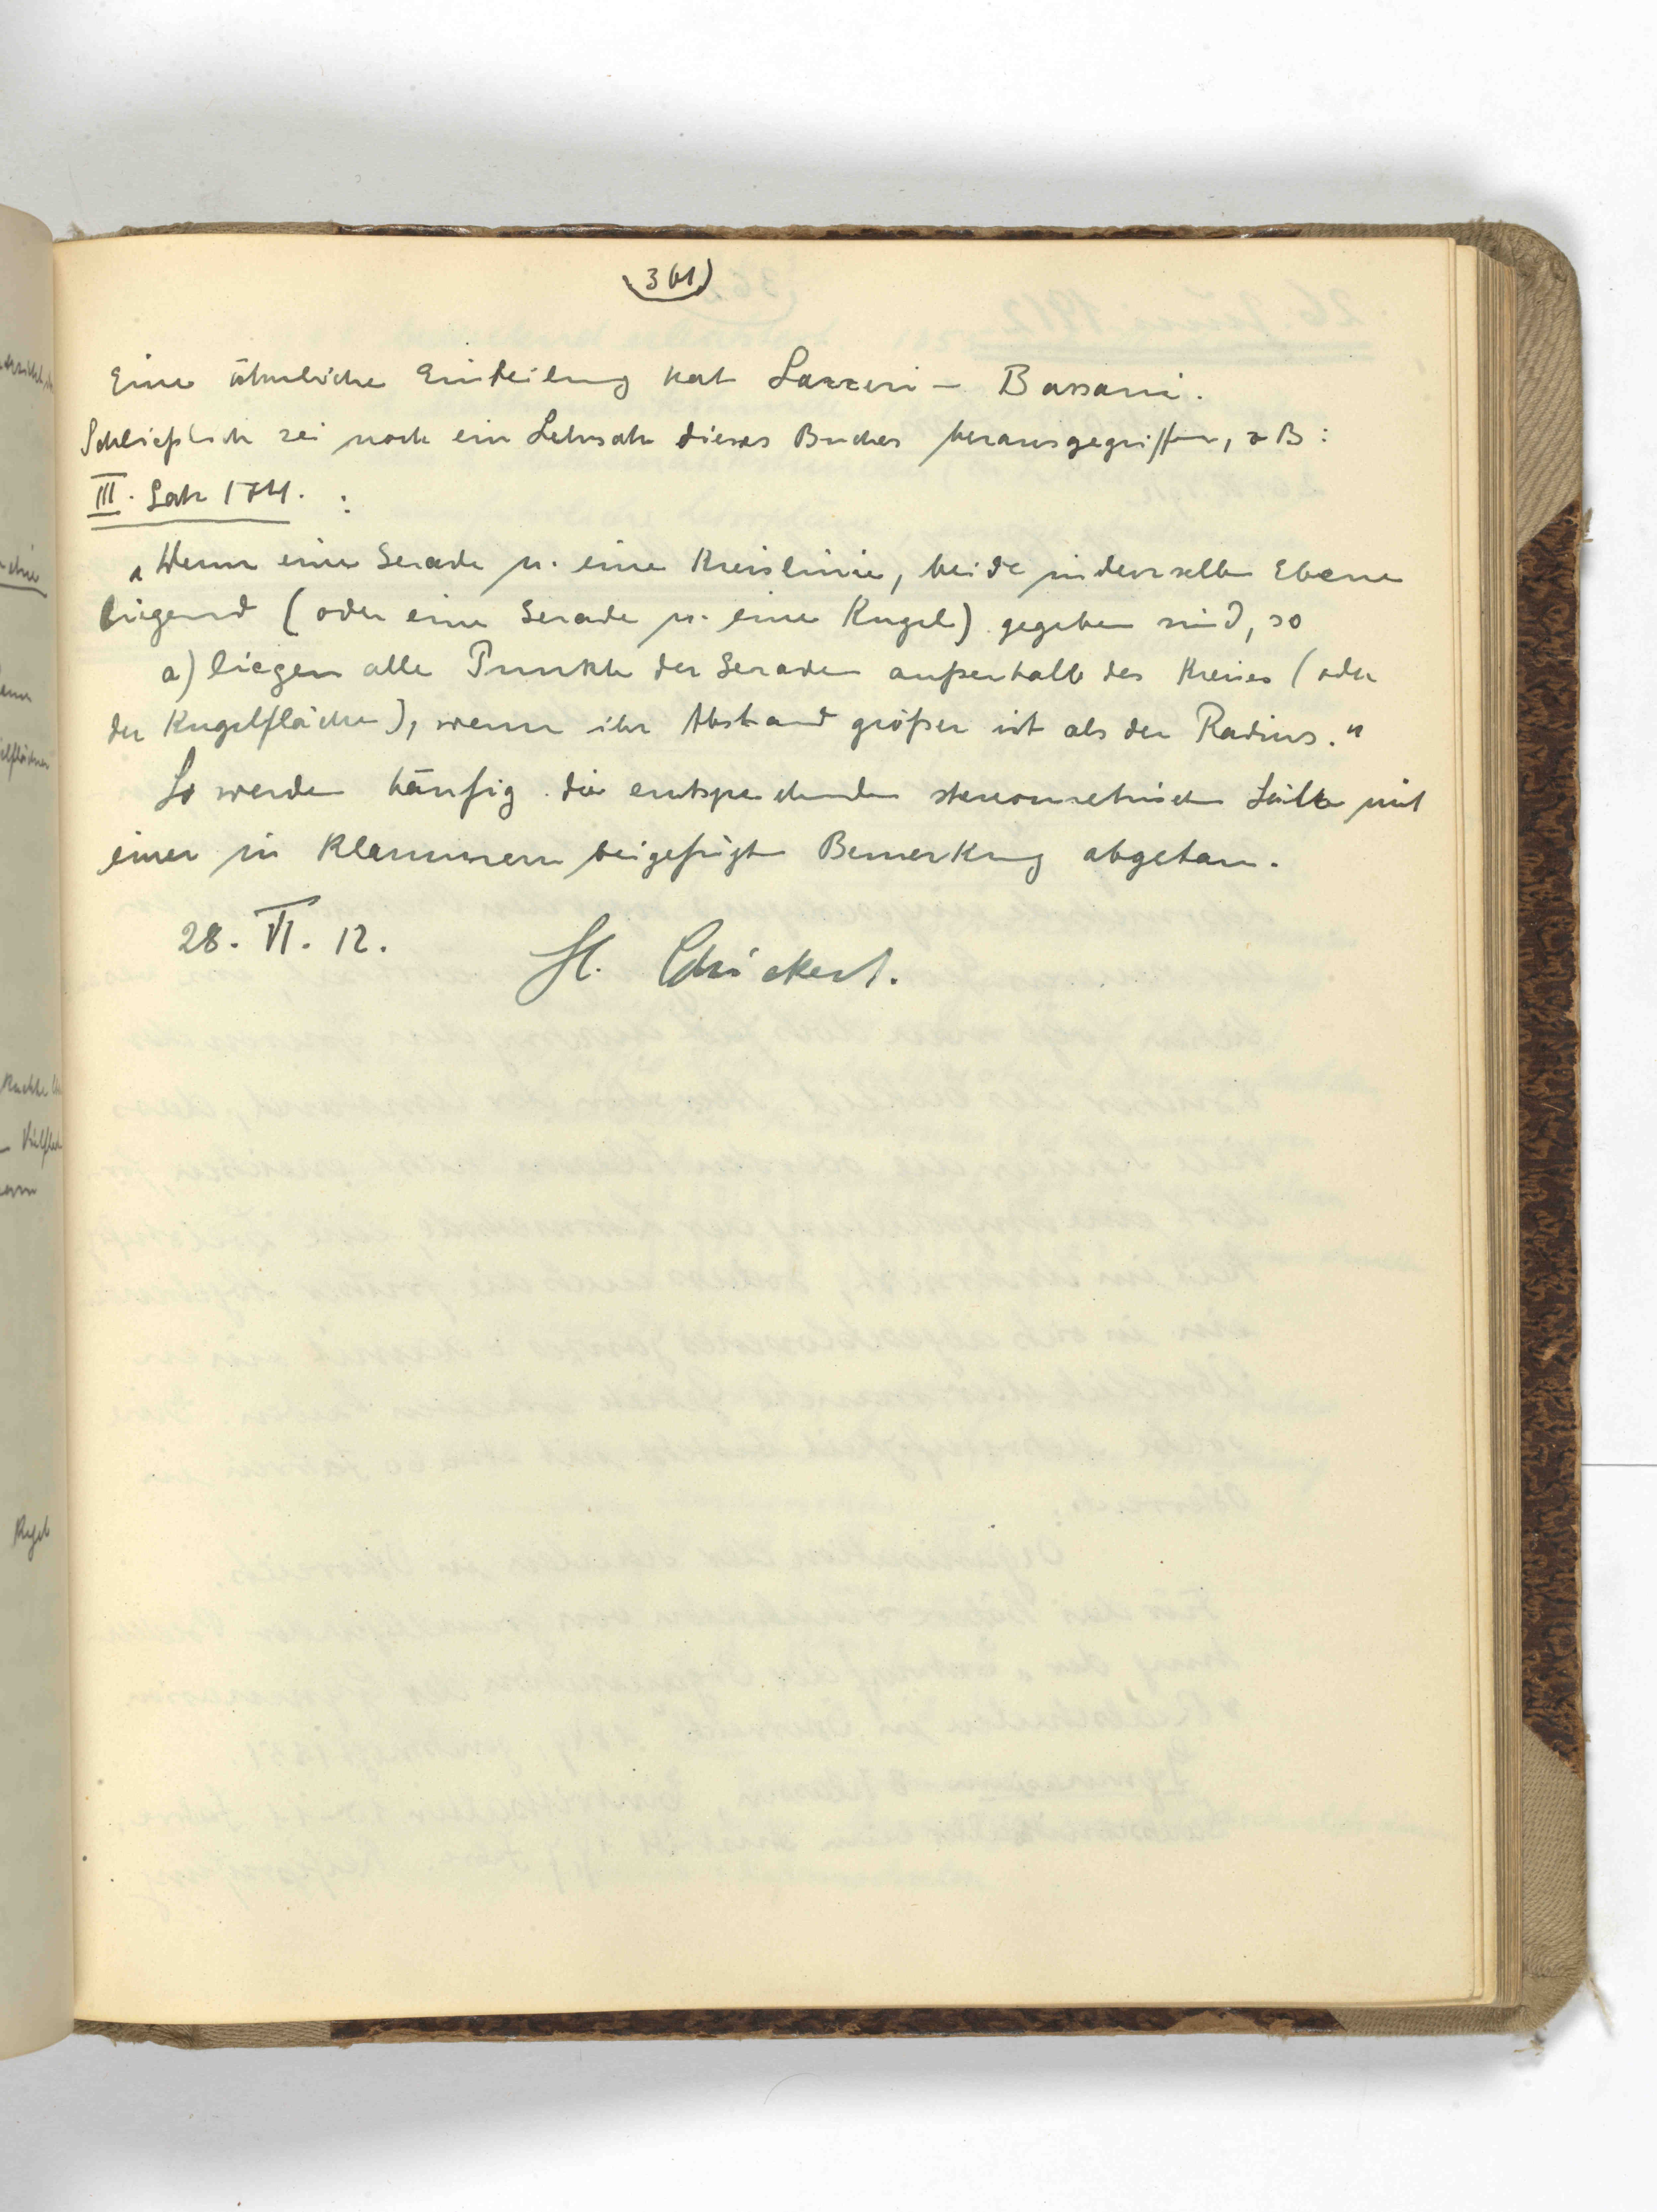 361
Eine ähnliche Einteilung hat Lazzeri - Bassani.
Schließlich sei noch ein Lehrsatz dieses Buches herausgegriffen, z B:
III. Satz 174. :
„Wenn eine Gerade u. eine Kreislinie, beide in derselben Ebene
liegend (oder eine Gerade u. eine Kugel) gegeben sind, so
a) liegen alle Punkte der Geraden außerhalb des Kreises (oder
der Kugelfläche), wenn ihr Abstand größer ist als der Radius."
So werden häufig die entsprechenden stereometrischen Sätze mit
einer in Klammern beigefügten Bemerkung abgetan.
28. VI. 12.